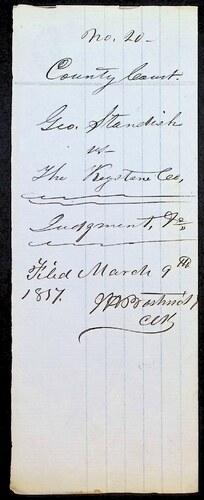 No. 20-
County Court.
Geo. Standish
vs-
The Keystone Co,
Judgment, &c
Filed March 9th
1857.
Clk